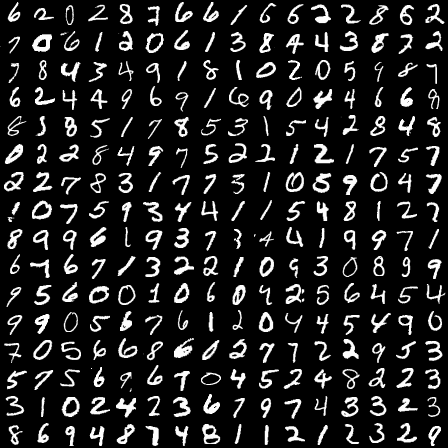 6 2 0 2 8 7 6 6 1 6 6 2 2 8 6 2
7 0 6 1 2 0 6 1 3 8 4 4 3 8 7 2
7 8 4 3 4 9 1 8 1 0 2 0 5 9 8 7
6 2 4 4 9 6 9 1 6 9 0 4 4 6 6 8
8 3 8 5 1 7 8 5 3 1 5 4 2 8 4 8
0 2 2 8 4 9 7 5 2 2 1 2 1 7 5 7
2 2 7 8 3 1 7 7 3 1 0 5 9 0 4 7
1 0 7 5 9 3 4 4 1 1 5 4 8 1 2 7
8 9 9 6 1 9 3 7 3 4 4 1 9 9 7 1
6 7 6 7 1 3 2 2 1 0 9 3 0 8 9 9
9 5 6 0 0 1 0 6 0 4 2 5 6 4 5 4
9 9 0 5 6 7 6 1 2 0 4 4 5 4 9 0
7 0 5 6 6 8 0 2 7 7 2 2 9 5 3
5 7 5 6 9 6 7 0 4 5 2 4 8 2 2 3
3 1 0 2 4 2 3 6 7 9 7 4 3 3 2 3
8 6 9 4 8 7 4 8 1 1 2 1 2 3 2 0